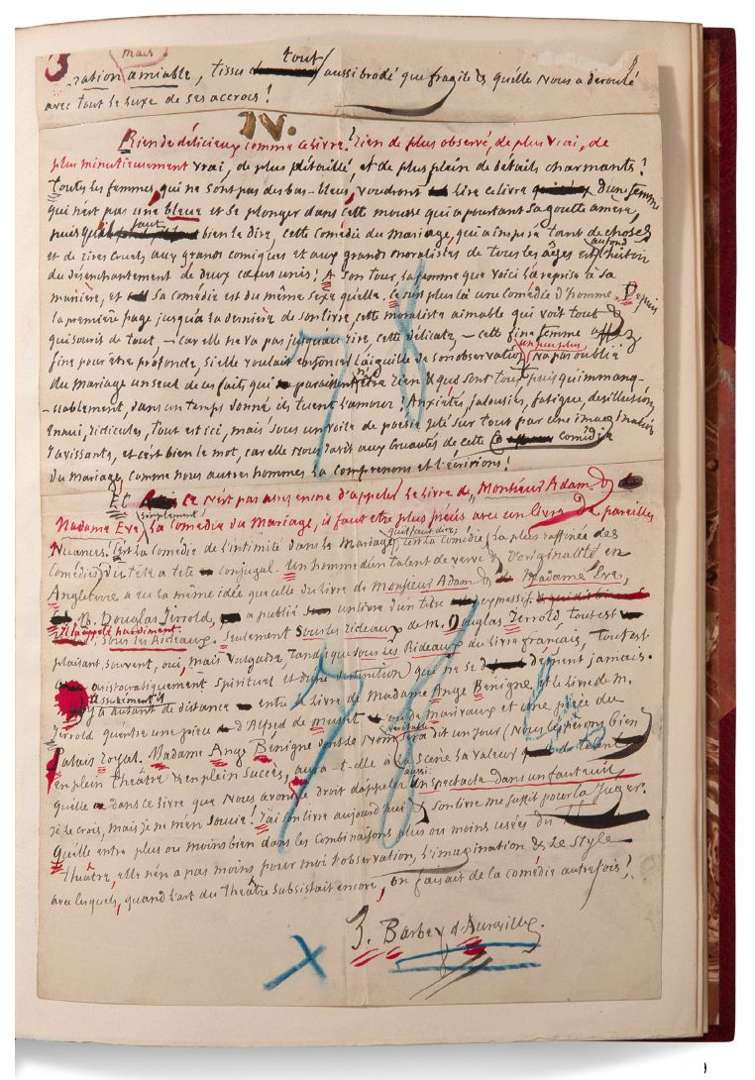 mais
ration amiable, tissu tout aussi brodé que fragile & qu'elle nous a déroulé
avec tout le luxe de ses accrocs!
IV.
Rien de délicieux comme ce livre! rien de plus observé, de plus vrai, de
plus minutieusement vrai, de plus détaillé, et de plus plein de détails charmants!
Toutes les femmes, qui ne sont pas des bas-bleus, voudront lire ce livre d'une femme
qui n'est pas une bleue et se plonger dans cette mousse qui a pourtant sa goutte amère,
puisqu'il faut bien le dire, cette Comédie du Mariage, qui a inspiré tant de choses
et de rires cruels aux grands comiques et aux grands moralistes de tous les âges est au fond l'histoire
du désenchantement de deux cœurs unis! A son tour, la femme que voici l'a reprise à sa
manière, et sa Comédie est du même sexe qu'elle. Ce n'est plus là une Comédie d'homme. Depuis
la première page jusqu'à la dernière de son livre, cette moraliste aimable qui voit tout &
qui sourit de tout, – car elle ne va pas jusqu'au rire, cette délicate, – cette fine femme assez
fine pour être profonde, si elle voulait enfoncer l'aiguille de son observation un peu plus, n'a pas oublié
du mariage un seul de ces faits qui paraissent rien & qui sont tout, puis qu'immanqu-
-ablement, dans un temps donné, ils tuent l'amour! Anxiétés, jalousies, fatigue, désillusion,
Ennui, ridicules, tout est ici, mais sous un voile de poésie jeté sur tout par une imagination
ravissante, et c'est bien le mot, car elle nous ravit aux cruautés de cette Comédie
du Mariage, comme nous autres hommes la comprenons et l'écrivons!
Et ce n'est pas assez encore d'appeler le livre de „Monsieur Adam & de
Madame Eve, simplement la Comédie du Mariage, il faut être plus précis avec un livre de pareilles
Nuances! C'est la Comédie de l'intimité dans le Mariage, c'est la Comédie la plus raffinée des
Comédies du tête à tête conjugal. Un homme d'un talent de verve & d'originalité en
Angleterre a eu la même idée que celle du livre de Monsieur Adam & Madame Eve,
M. Douglas Jerrold, a publié un livre d'un titre expressif.
Il l'a appelé hardiment: Sous les Rideaux. Seulement Sous les Rideaux de M. Douglas Jerrold, tout est
plaisant souvent, oui, mais vulgaire, tandis que sous les Rideaux du livre français, tout est
aristocratiquement spirituel et d'une distinction qui ne se dément jamais.
Il y a autant de distance entre le livre de Madame Ange Bénigne et le livre de M.
Jerrold qu'entre une pièce d'Alfred de Musset ou de Marivaux et une pièce du
Palais Royal. Madame Ange Bénigne dont le Nom véritable sera dit un jour (Nous l'espérons bien
en plein Théâtre & en plein Succès, aura-t-elle à la Scène la valeur
qu'elle a dans ce livre que nous avons le droit d'appeler aussi: un Spectacle dans un fauteuil.
Je le crois, mais je ne m'en soucie! J'ai son livre aujourd'hui & son livre me suffit pour la Juger.
Qu'elle entre plus ou moins bien dans les Combinaisons plus ou moins usées du
Théâtre, elle n'en a pas moins pour moi l'observation, l'imagination & le style
avec lesquels, quand l'art du Théâtre subsistait encore, on faisait de la comédie autrefois!
J. Barbey d'Aurevilly.